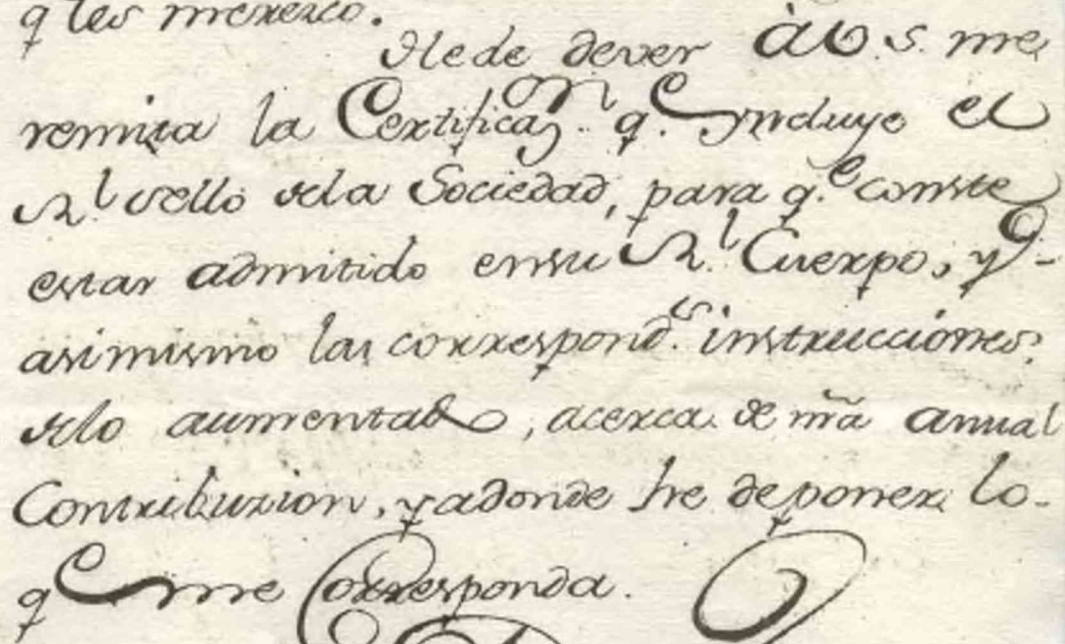 q les merezco.
He de dever à V. S. me
remita la Certificazn. q.e Yncluye el
Rl. sello dela Sociedad, para q.e conste
estar admitido ensu Rl. Cuerpo, y
asimismo las correspond.s instrucciones,
delo aumentado, acerca de nra anual
Contribuzion, y adonde he de poner lo
qe me Corresponda.